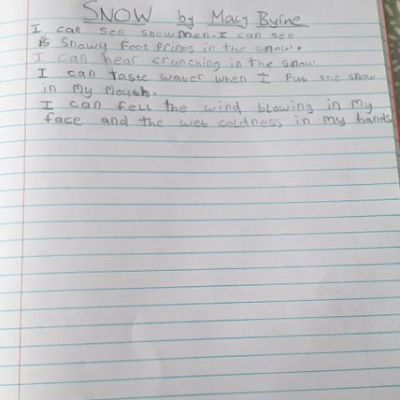 SNOW by Macy Byrne
I can see snowmen. I can see
snowy foot prints in the snow.
I can hear crunching in the snow.
I can taste water when I put the snow
in my mouth.
I can fell the wind blowing in my
face and the wet coldness in my hands